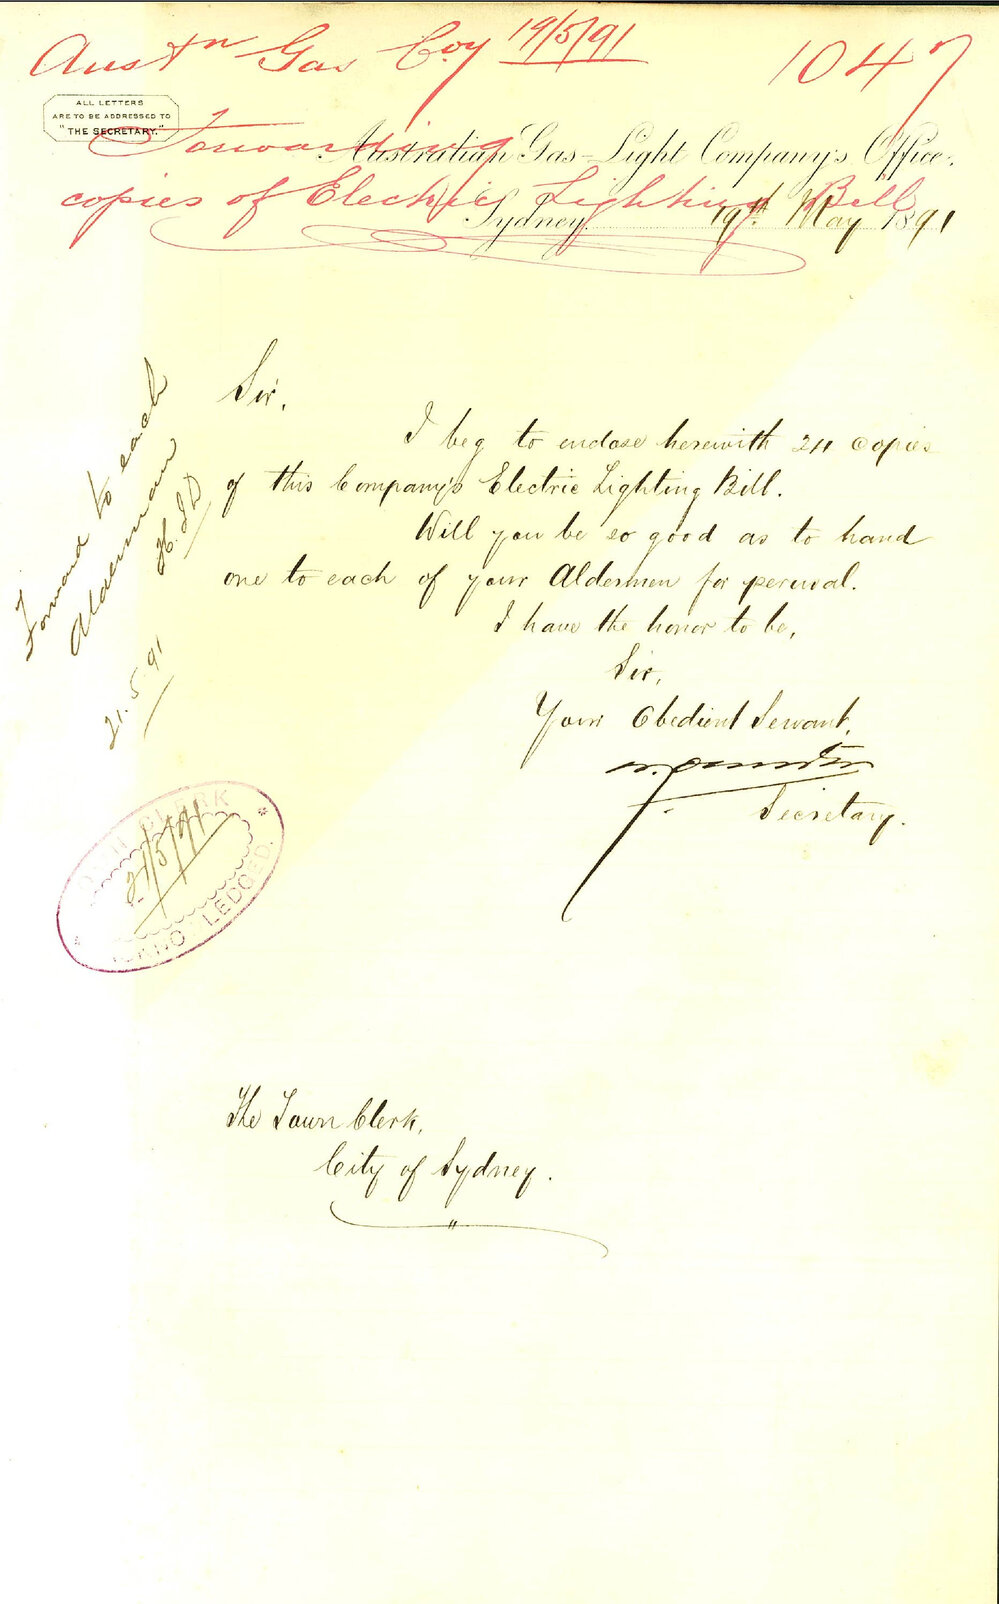 Austn Gas Coy 19/5/91 1047
Forwarding
copies of Electric Lighting Bill
ALL LETTERS
ARE TO BE ADDRESSED TO
"THE SECRETARY."
Australian Gas-Light Company's Office,
Sydney 19th May 1891
Sir,
I beg to enclose herewith 24 copies
of this Company's Electric Lighting Bill.
Will you be so good as to hand
one to each of your Aldermen for perusal.
I have the honor to be,
Sir,
Your Obedient Servant,
Secretary.
Forward to each
Alderman
21.5.91
TOWN CLERK
21/5/91
ACKNOWLEDGED.
The Town Clerk,
City of Sydney.